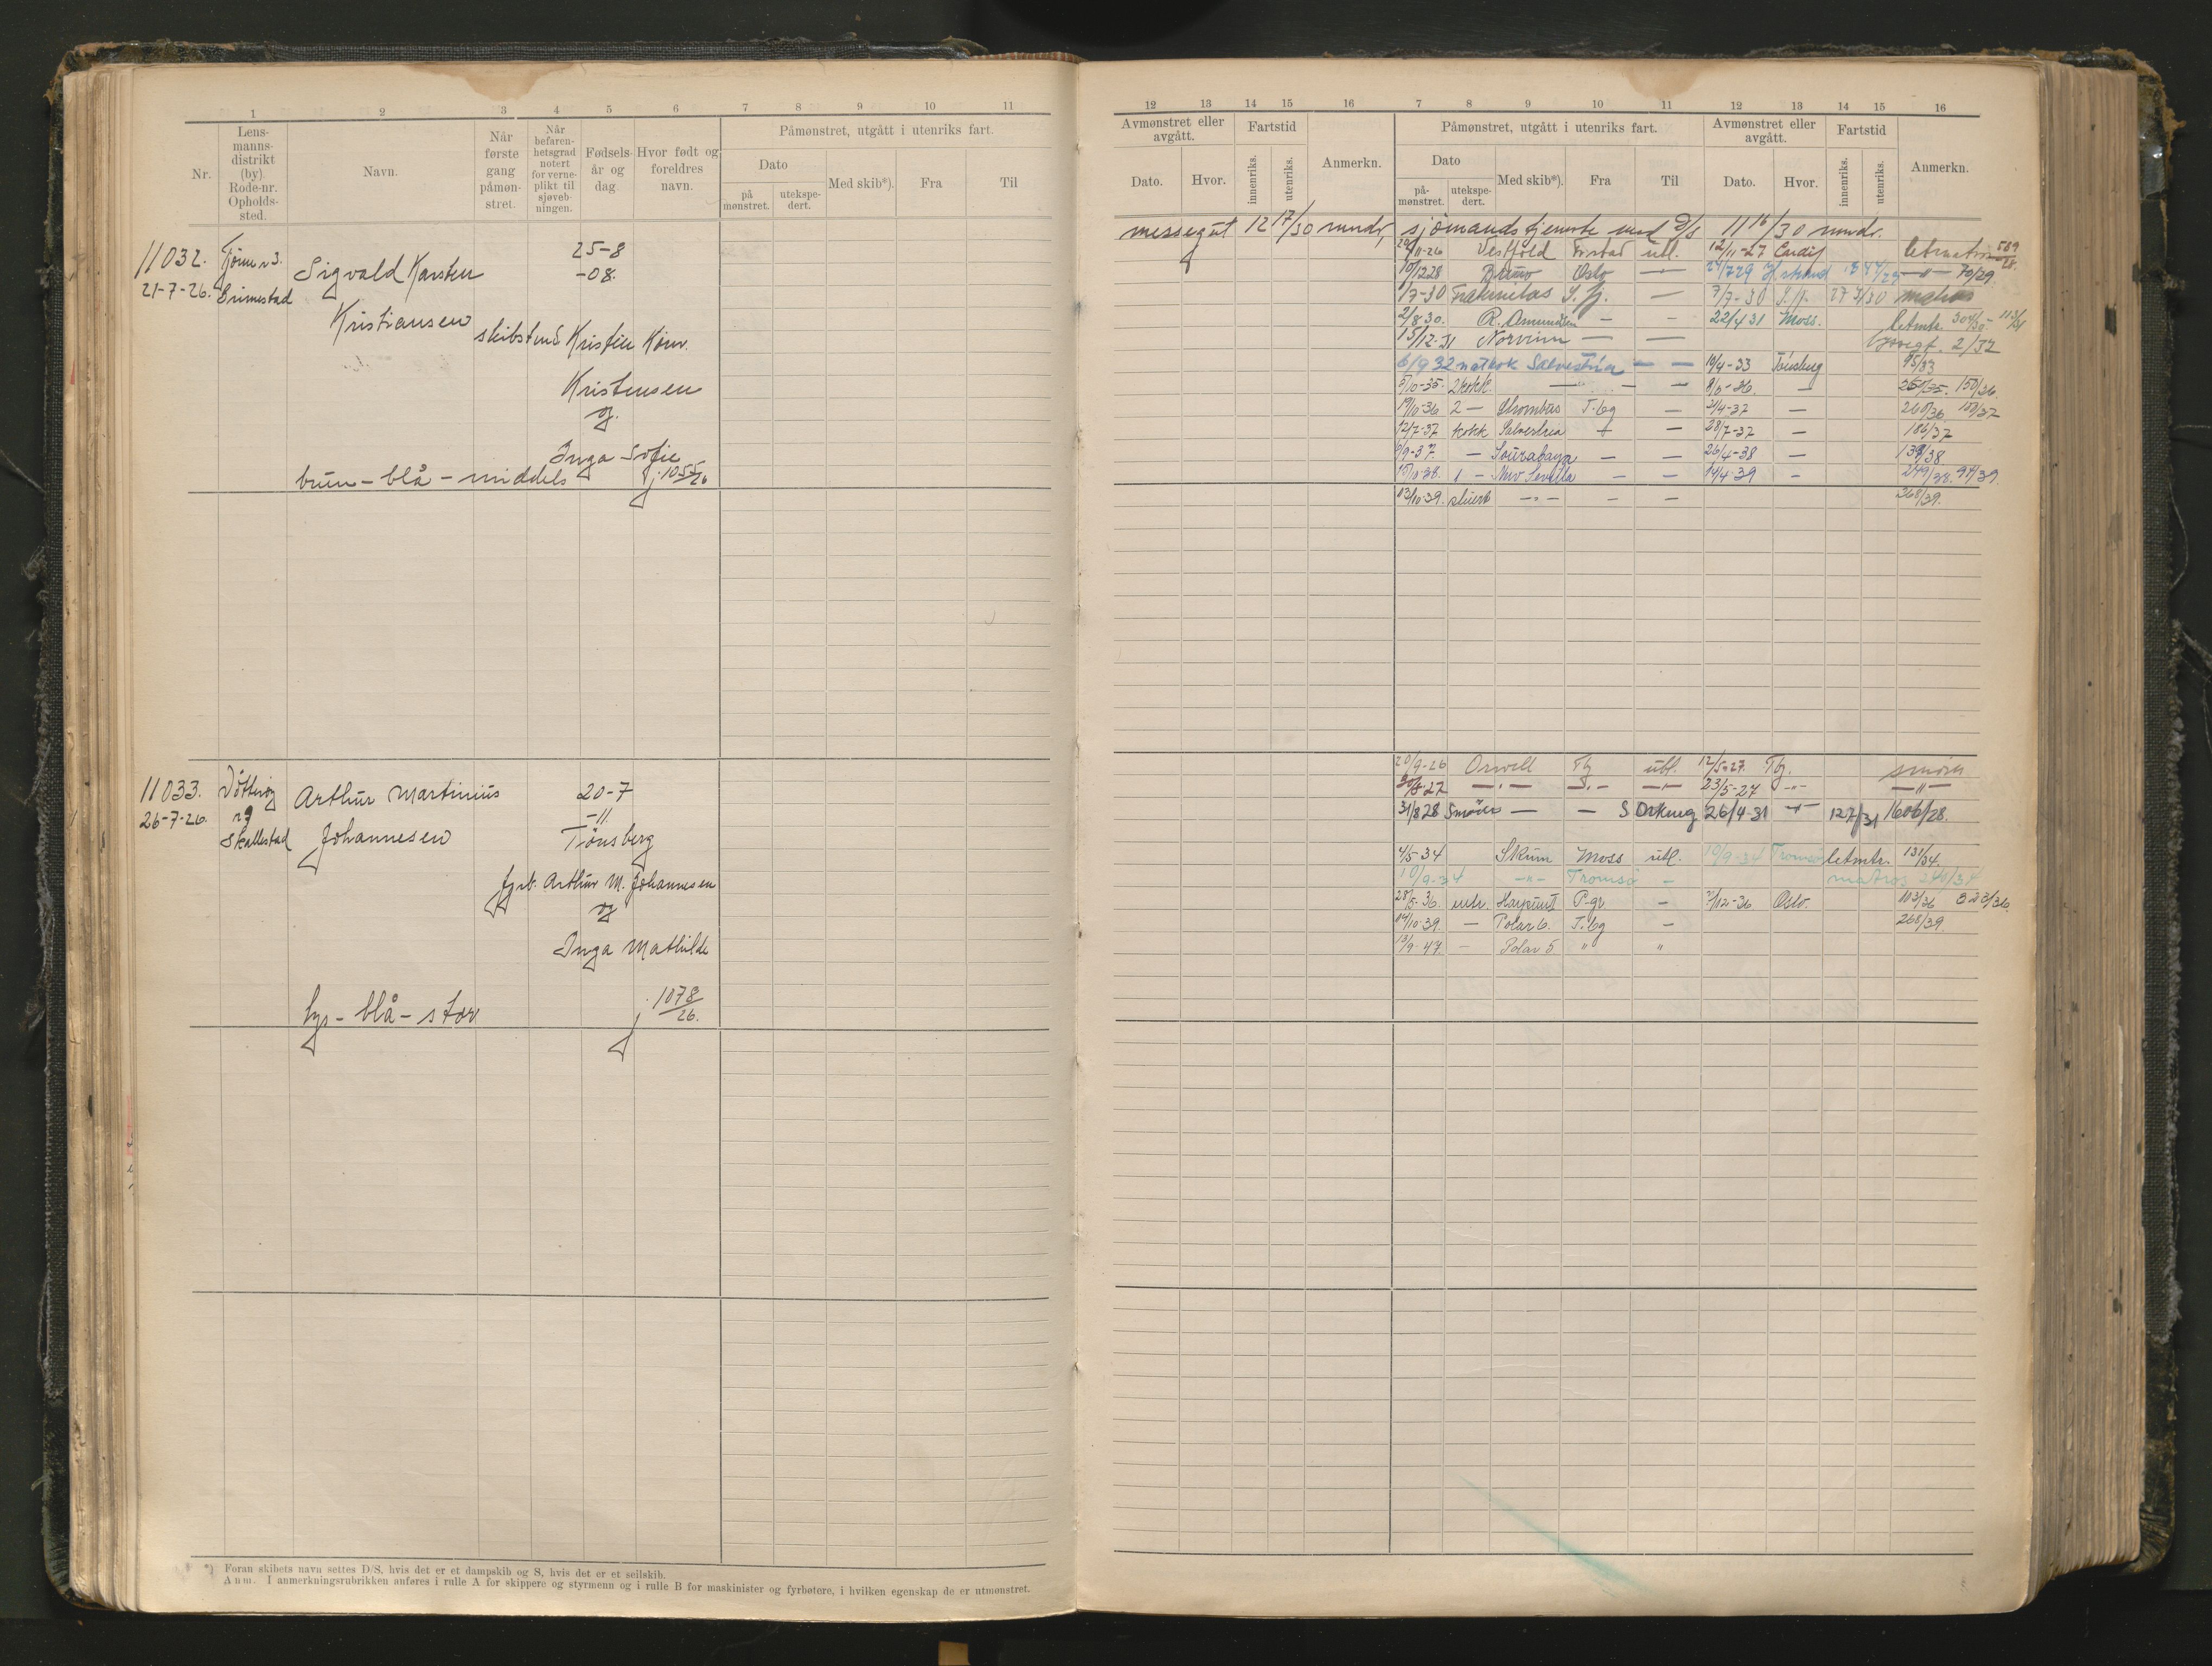 1 2 3 4 5 6 7 8 9 10 11
Nr. Lens-manns-distrikt (by). Rode-nr. Opholds-sted. Navn. Når første gang påmøn-stret. Når befaren-hetsgrad notert for verne-plikt til sjøveb-ningen. Fødsels-år og dag. Hvor født og foreldres navn.
Påmønstret, utgått i utenriks fart.
Dato Med skib*). Fra Til
på mønstret. utekspe-dert.
11032. Tjøme r 3. 25-8
21-7-26. Grimestad Sigvald Karsten -08.
Kristiansen
skibstmd Kristen Konr.
Kristensen
og
Inga Sofie
brun - blå - middels j. 1055/26
11033. Nøtterøy Arthur Martinius 20-7
26-7-26. r 9 -11
Skallestad Johannesen Tønsberg
fyrb. Arthur M. Johannesen
og
Inga Mathilde
lys - blå - stor j. 1078/26.
*) Foran skibets navn settes D/S, hvis det er et dampskib og S, hvis det er et seilskib.
Anm. I anmerkningsrubrikken anføres i rulle A for skippere og styrmenn og i rulle B for maskinister og fyrbøtere, i hvilken egenskap de er utmønstret.
12 13 14 15 16 7 8 9 10 11 12 13 14 15 16
Avmønstret eller avgått. Fartstid Anmerkn. Påmønstret, utgått i utenriks fart. Avmønstret eller avgått. Fartstid Anmerkn.
Dato. Hvor. innenriks. utenriks. Dato Med skib*). Fra Til Dato. Hvor. innenriks. utenriks.
på-mønstret. utekspe-dert.
messegut 12 17/30 mndr, sjømandstjeneste med D/S 11 16/30 mndr.
Vestfold utl. 12/11-27 Cardif letmatros 589/28.
10/12 28 Bruno Oslo — 24/7 29 — " — 70/29.
1/7-30 Fraternitas S.fj. — 7/7-30 S.fj. matros
2/8 30. R. Amundsen — — 22/4 31 Moss. letmtr. 113/31
15/12-31 Norvinn — — 2/32
6/9 32 natkok Salvestria — — 10/4-33 Tønsberg 95/33
5/10-35. 2 kokk. — — — 8/5-36. — 150/36.
19/10-36 2 — Strombus T.bg — 21/4-37 — 260/36 150/37
12/7-37 kokk Salvestria — 28/7-37 — 186/37
9/9-37. — Sourabaya — — 26/4-38 — 139/38
15/10-38. 1 — New Sevilla — — 14/4-39 — 249/38. 94/39.
13/10-39. stuert — " — — — 268/39.
20/9-26 Orwell Tbg utl. 12/5-27. Tbg. smører
— " — — " — 23/5-27 — " — — " —
31/8 28 Smører — — S Orkney 26/4-31 — " — 127/31 1606/28.
4/5-34 Skum Moss utl. 10/9-34 Tromsø letmtr. 131/34.
10/9-34 — " — Tromsø — matros 244/34
28/5-36. mtr. Harpun II P-gr. — Oslo. 113/36
14/10-39. — Polar 6. T.bg — 268/39.
13/9-47. — Polar 5 " "